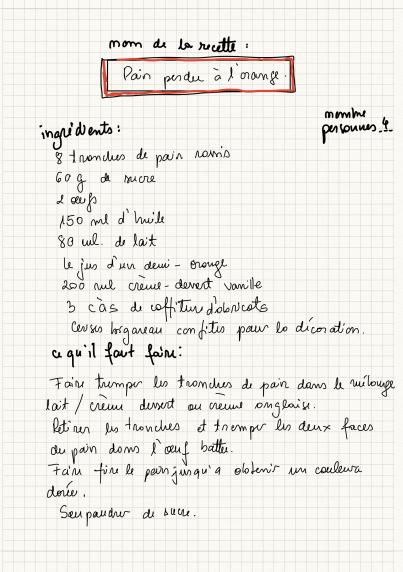 nom de la recette :
Pain perdu à l'orange.
nombre
personnes 4
ingrédients :
8 tronches de pain rassis
60 g de sucre
2 œufs
150 ml d'huile
80 ml. de lait
le jus d'un demi - orange
200 ml crème - desert vanille
3 càs de coffiture d'abricots
confites pour la décoration.
ce qu'il faut faire:
Faire tremper les tronches de pain dans le mélange
lait / crème dessert ou crème anglaise.
Retirer les tronches et tremper les deux faces
du pain dans l'œuf battu.
Faire frire le pain jusqu'a obtenir un couleur
dorée.
Saupaudrer de sucre.